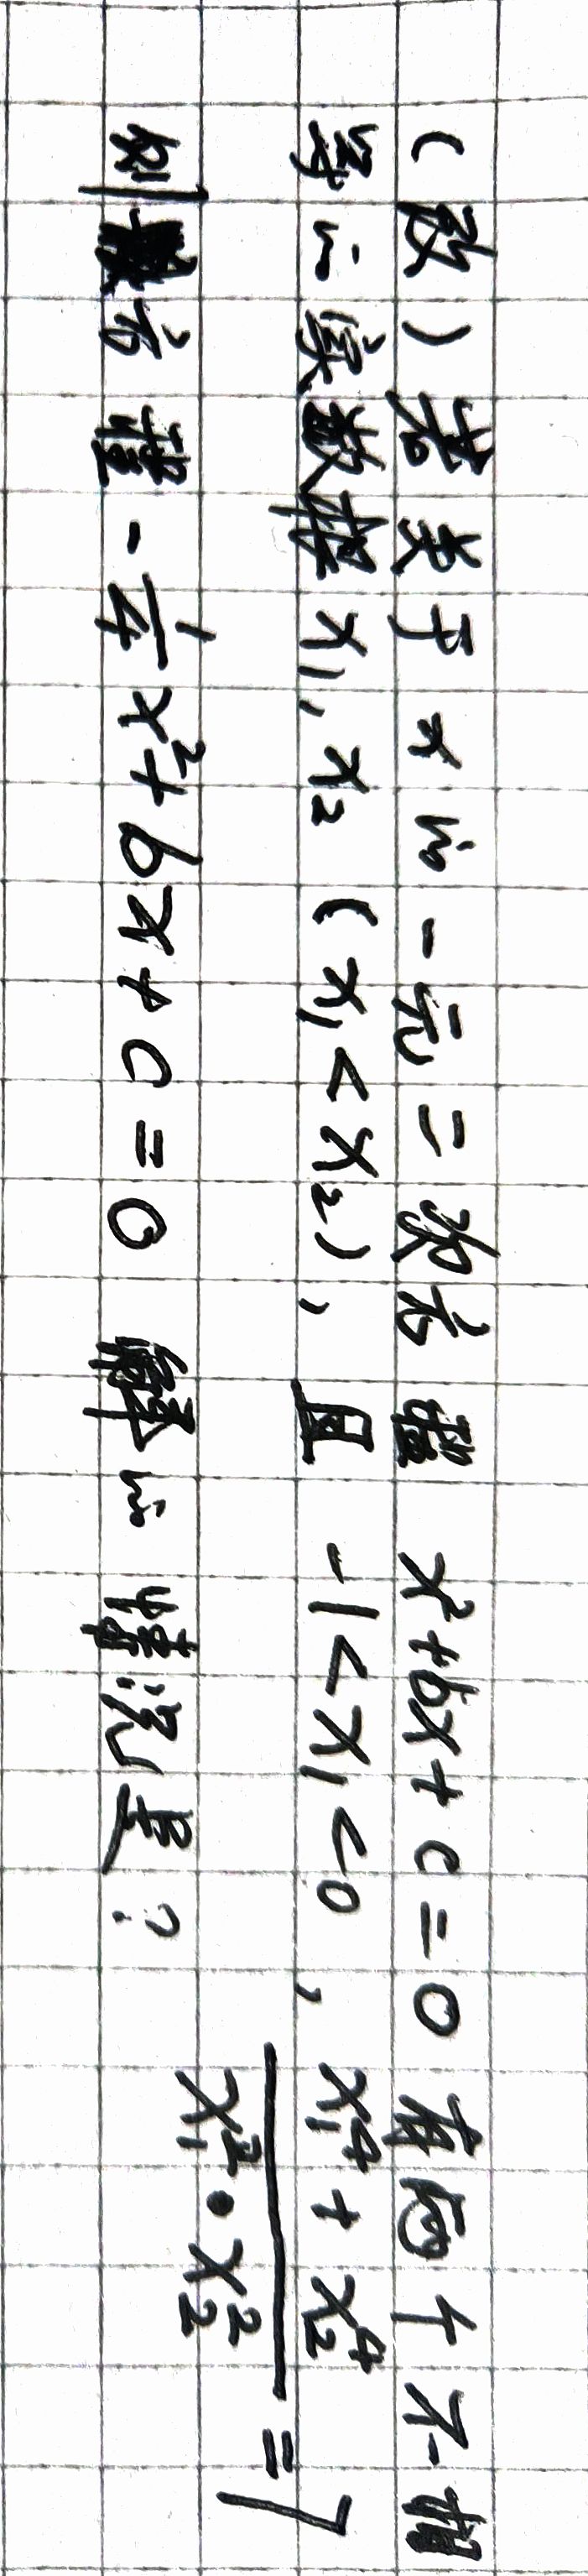 (改)若关于x的一元二次方程 x²+bx+c=0 有两个不相
等的实数根x₁,x₂(x₁<x₂),且 -1<x₁<0,(x₁⁴+x₂⁴)/(x₁²·x₂²)=7
则方程-1/4x²+bx+c=0 解的情况是?